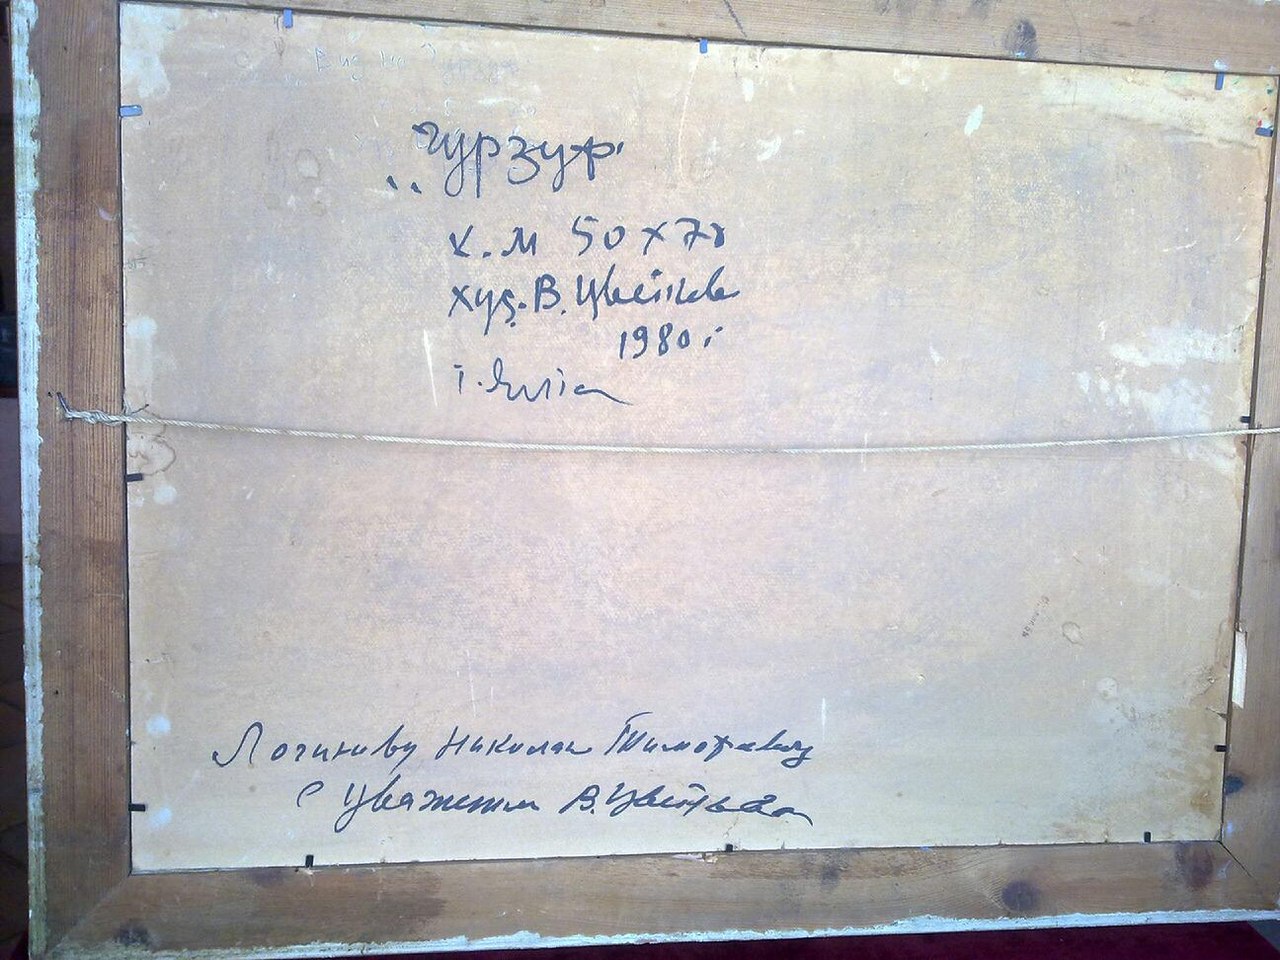 Вид на Гурзуф
„Гурзуф"
к.м 50х70
худ. В. Цветкова
1980 г
г. Ялта
Логинову Николаю Тимофеевичу
С уважением В. Цветкова